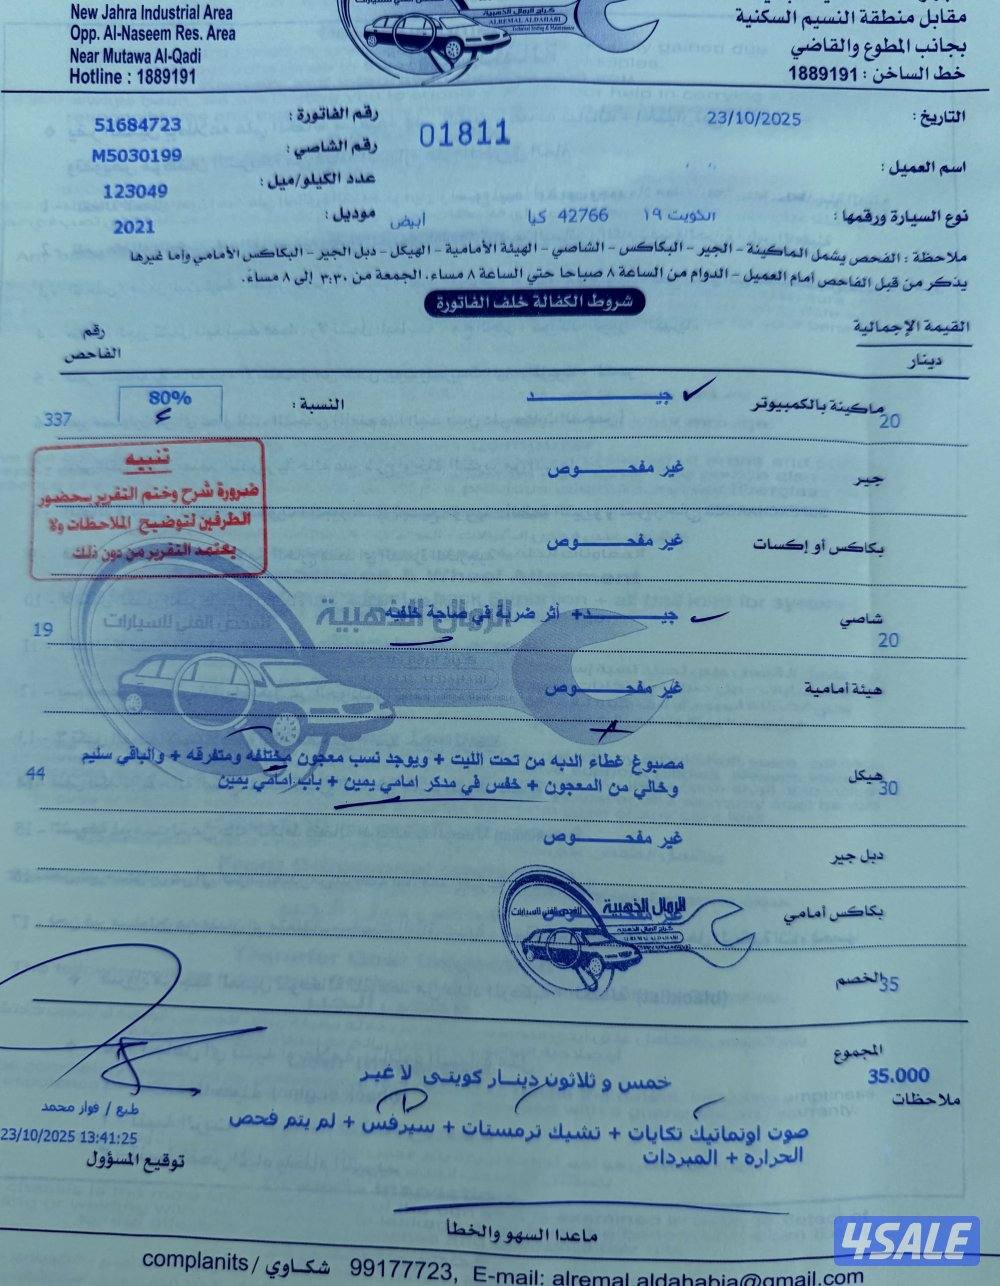 New Jahra Industrial Area
Opp. Al-Naseem Res. Area
Near Mutawa Al-Qadi
Hotline : 1889191
ALREMAL ALDAHABI
Technical Testing & Maintenance
مقابل منطقة النسيم السكنية
بجانب المطوع والقاضي
خط الساخن : 1889191
التاريخ : 23/10/2025
01811
رقم الفاتورة : 51684723
رقم الشاصي : M5030199
اسم العميل :
عدد الكيلو/ميل : 123049
نوع السيارة ورقمها : الكويت ١٩ 42766 كيا ابيض
موديل : 2021
ملاحظة : الفحص يشمل الماكينة - الجير - البكاكس - الشاصي - الهيئة الأمامية - الهيكل - دبل الجير - البكاكس الأمامي وأما غيرها
يذكر من قبل الفاحص أمام العميل - الدوام من الساعة ٨ صباحا حتي الساعة ٨ مساء، الجمعة من ٣:٣٠ إلى ٨ مساءً.
شروط الكفالة خلف الفاتورة
القيمة الإجمالية
دينار
رقم
الفاحص
ماكينة بالكمبيوتر 20 جيــــد النسبة : 80% 337
جير غير مفحــــوص
تنبيه
ضرورة شرح وختم التقرير بحضور
الطرفين لتوضيح الملاحظات ولا
يعتمد التقرير من دون ذلك
بكاكس أو إكسات غير مفحــــوص
الرمال الذهبية
للفحص الفني للسيارات
شاصي 20 جيــــد+ أثر ضربة في صاجة خلفيه 19
هيئة أمامية غير مفحــــوص
هيكل 30 مصبوغ غطاء الدبه من تحت الليت + ويوجد نسب معجون مختلفه ومتفرقه + والباقي سليم
وخالي من المعجون + خفس في مدكر امامي يمين + باب امامي يمين 44
دبل جير غير مفحــــوص
بكاكس أمامي غير مفحــــوص
الرمال الذهبية
للفحص الفني للسيارات
ALREMAL ALDAHABI
الخصم 35
المجموع
35.000
خمس و ثلاثون دينار كويتى لا غير
ملاحظات
صوت اوتماتيك تكايات + تشيك ترمستات + سيرفس + لم يتم فحص
الحراره + المبردات
طبع / فواز محمد
23/10/2025 13:41:25
توقيع المسؤول
ماعدا السهو والخطأ
complanits / شكاوي 99177723, E-mail: alremal.aldahabia@gmail.com
4SALE